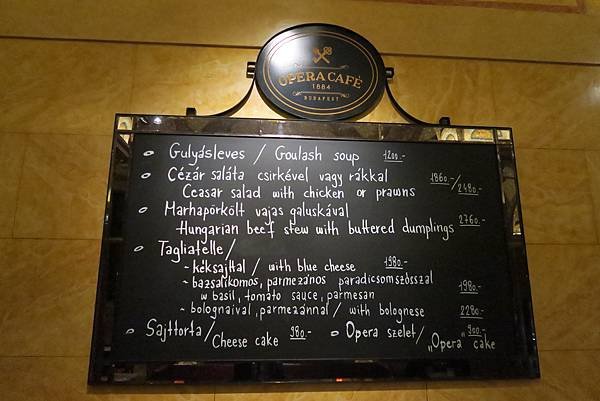 OPERA CAFÉ
1884
BUDAPEST
Gulyásleves / Goulash soup 1200.-
Cézár saláta csirkével vagy rákkal 1860.-/2480.-
Ceasar salad with chicken or prawns
Marhapörkölt vajas galuskával
Hungarian beef stew with buttered dumplings 2760.-
Tagliatelle/
- kéksajttal / with blue cheese 1980.-
- bazsalikomos, parmezános paradicsomszósszal
w basil, tomato sauce, parmesan 1980.-
- bolognaival, parmezánnal / with bolognese 2280.-
Sajttorta / Cheese cake 980.-
Opera szelet / „Opera" cake 900.-